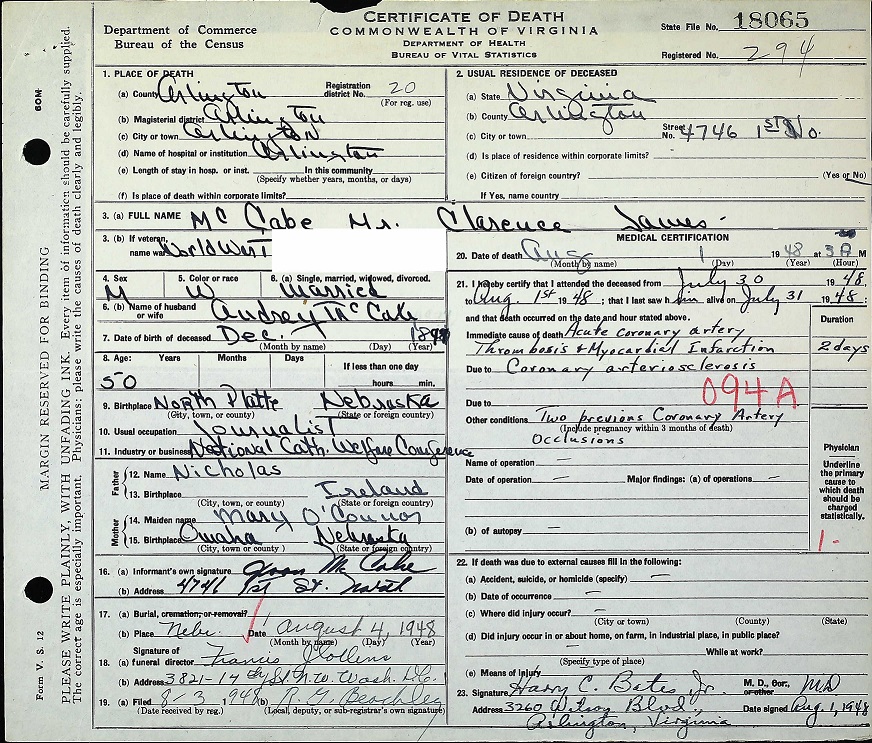 CERTIFICATE OF DEATH
COMMONWEALTH OF VIRGINIA
DEPARTMENT OF HEALTH
BUREAU OF VITAL STATISTICS
Department of Commerce
Bureau of the Census
State File No. 18065
Registered No. 294
MARGIN RESERVED FOR BINDING
60M
PLEASE WRITE PLAINLY, WITH UNFADING INK. Every item of information should be carefully supplied.
The correct age is especially important. Physicians: please write the causes of death clearly and legibly.
Form V. S. 12
1. PLACE OF DEATH
(a) County Arlington Registration district No. 20
(For reg. use)
(b) Magisterial district Arlington
(c) City or town Arlington
(d) Name of hospital or institution Arlington
(e) Length of stay in hosp. or inst. In this community
(Specify whether years, months, or days)
(f) Is place of death within corporate limits?
2. USUAL RESIDENCE OF DECEASED
(a) State Virginia
(b) County Arlington
(c) City or town Street No. 4746 1st No.
(d) Is place of residence within corporate limits?
(e) Citizen of foreign country? (Yes or No)
If Yes, name country
3. (a) FULL NAME McCabe Mr. Clarence James
3. (b) If veteran, name war World War I
4. Sex M
5. Color or race W
6. (a) Single, married, widowed, divorced. married
6. (b) Name of husband or wife Audrey McCabe
7. Date of birth of deceased Dec. 1898
(Month by name) (Day) (Year)
8. Age: Years Months Days If less than one day
50 hours min.
9. Birthplace North Platte Nebraska
(City, town, or county) (State or foreign country)
10. Usual occupation Journalist
11. Industry or business National Cath. Welfare Conference
Father
12. Name Nicholas
13. Birthplace Ireland
(City, town, or county) (State or foreign country)
Mother
14. Maiden name Mary O'Connor
15. Birthplace Omaha Nebraska
(City, town or county) (State or foreign country)
16. (a) Informant's own signature McCabe
(b) Address 4746 1st St. North
17. (a) Burial, cremation, or removal?
(b) Place Nebr. Date August 4, 1948
(Month by name) (Day) (Year)
18. (a) Signature of funeral director Francis Collins
(b) Address 3821-14th St. N.W. Wash. D.C.
19. (a) Filed 8-3 1948 (b) R. G. Beachley
(Date received by reg.) (Local, deputy, or sub-registrar's own signature)
MEDICAL CERTIFICATION
20. Date of death Aug 1 1948 at 3 A M
(Month by name) (Day) (Year) (Hour)
21. I hereby certify that I attended the deceased from July 30 1948
to Aug. 1st 1948; that I last saw him alive on July 31 1948;
and that death occurred on the date and hour stated above.
Duration
Immediate cause of death Acute coronary artery
Thrombosis & Myocardial Infarction 2 days
Due to Coronary arteriosclerosis
094A
Due to
Other conditions Two previous Coronary Artery
(Include pregnancy within 3 months of death)
Occlusions
Name of operation —
Date of operation — Major findings: (a) of operations —
(b) of autopsy —
Physician
—
Underline the primary cause to which death should be charged statistically.
1-
22. If death was due to external causes fill in the following:
(a) Accident, suicide, or homicide (specify) —
(b) Date of occurrence —
(c) Where did injury occur? —
(City or town) (County) (State)
(d) Did injury occur in or about home, on farm, in industrial place, in public place?
— While at work? —
(Specify type of place)
(e) Means of injury —
23. Signature Harry C. Bates, Jr. M. D., Cor., or other MD
Address 3260 Wilson Blvd., Date signed Aug. 1, 1948
Arlington, Virginia